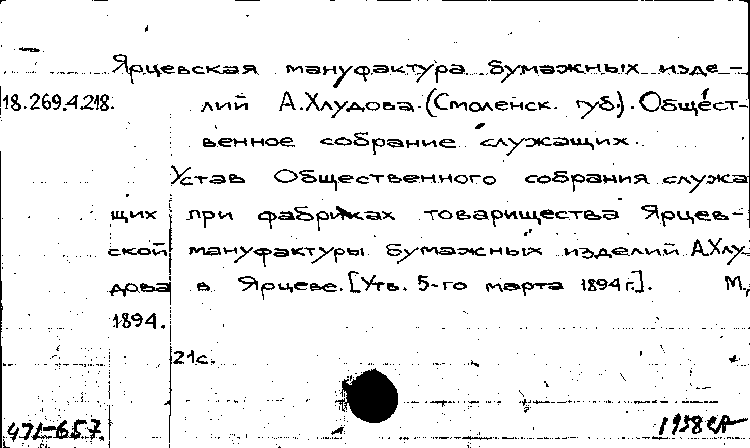 Ярцевская мануфактура бумажных изде-
18.269.4.218. лий А.Хлудова. (Смоленск. губ.). Общест-
венное собрание служащих.
Устав Общественного собрания служа
щих при фабриках товарищества Ярцев-
ской мануфактуры бумажных изделий А.Хлу
дова в Ярцеве. [Утв. 5-го марта 1894 г.]. М.,
1894.
21с.
471-657.